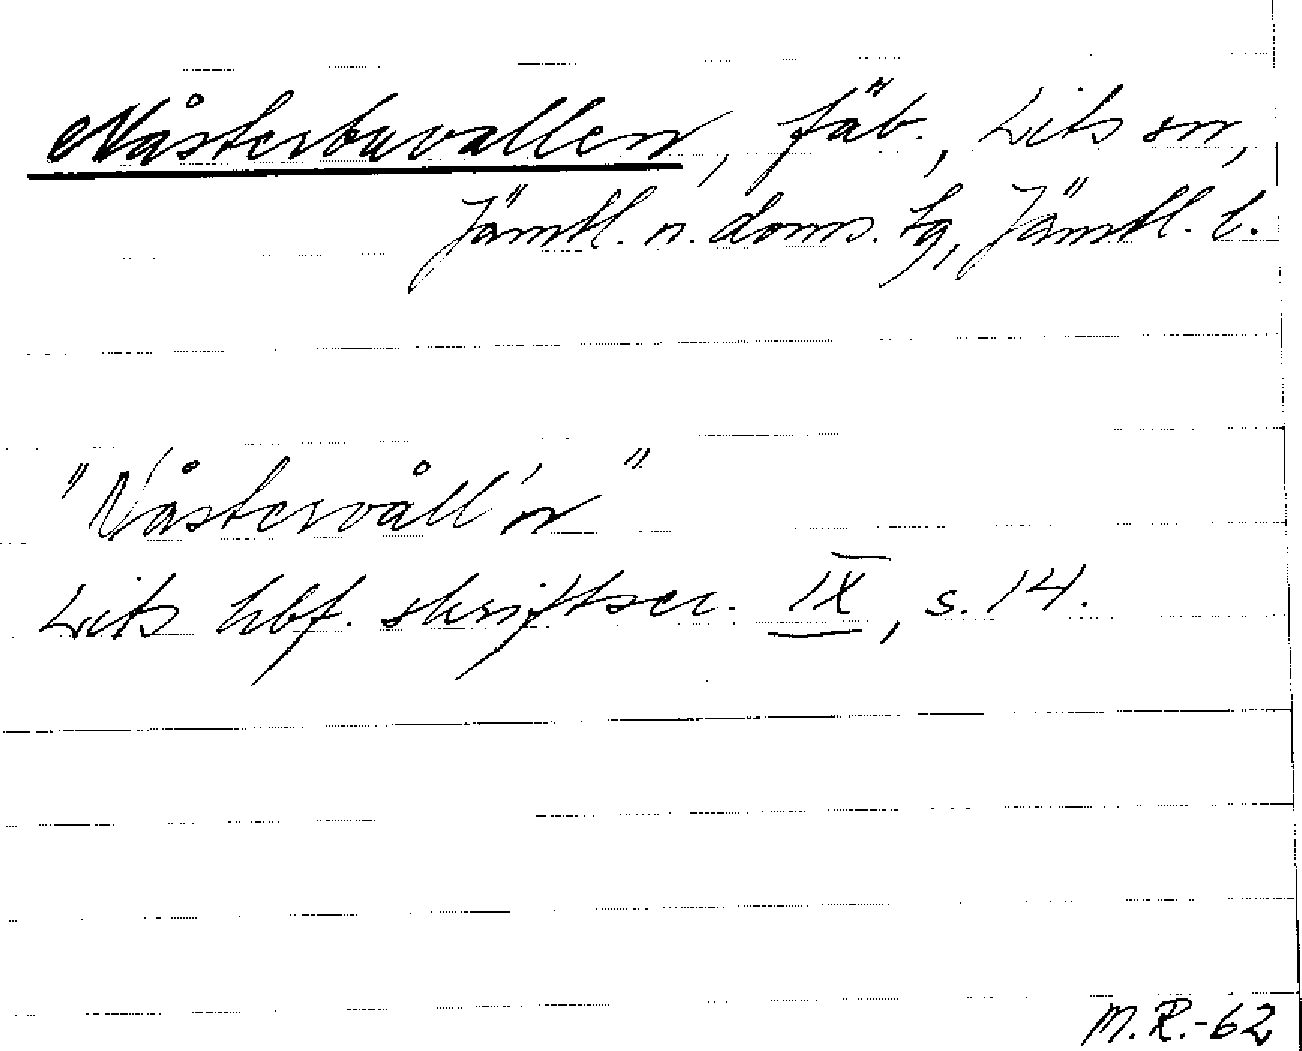 Nåsterbuvallen, fäb., Lits sn,
Jämtl. n. doms. tg, Jämtl. l.
"Nåstervåll'n"
Lits hbf. skriftser. IX, s. 14.
M.R.-62